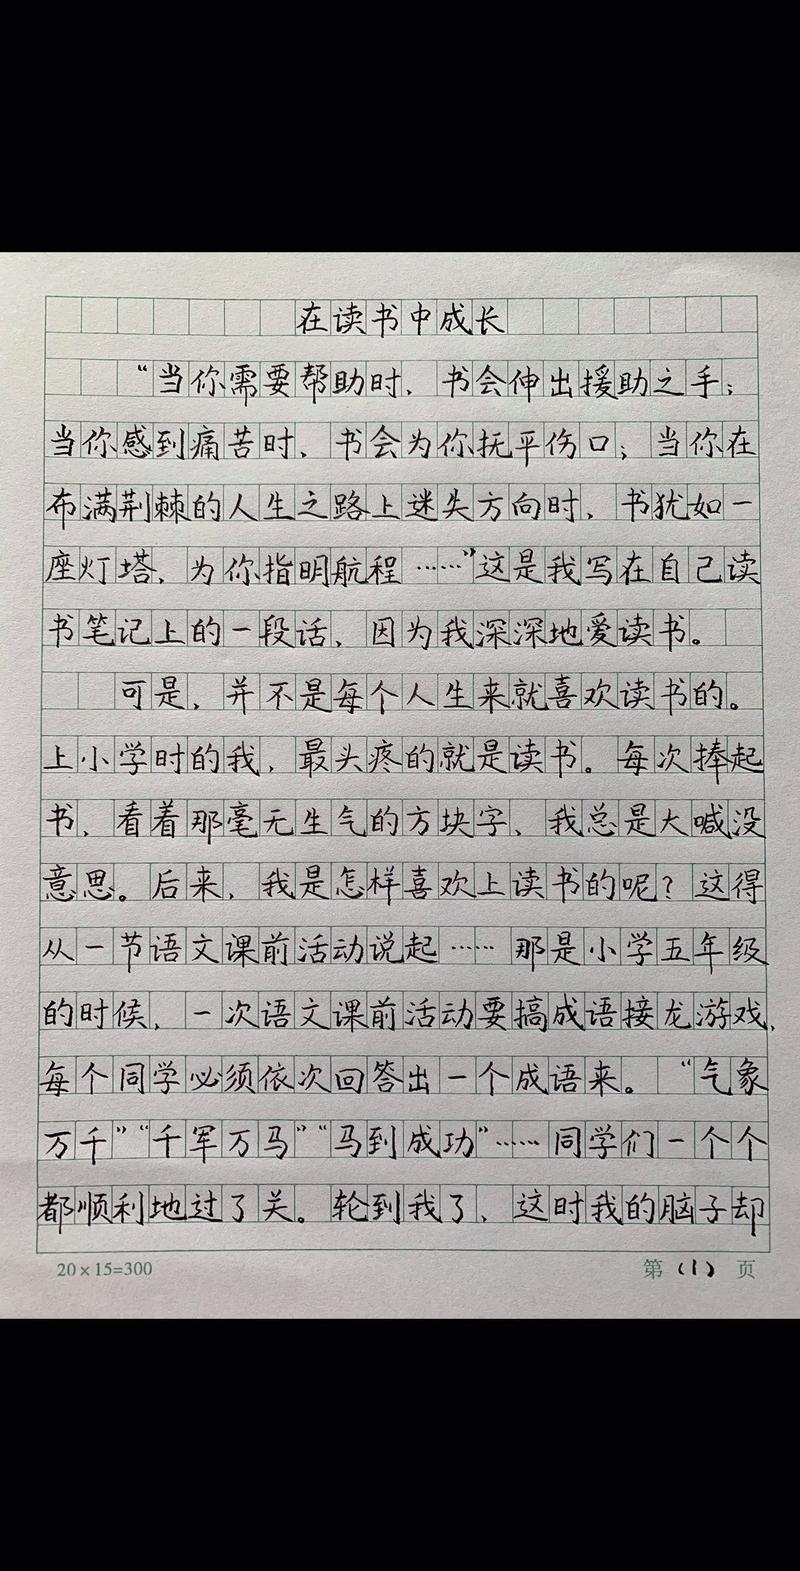 在读书中成长
“当你需要帮助时，书会伸出援助之手；
当你感到痛苦时，书会为你抚平伤口；当你在
布满荆棘的人生之路上迷失方向时，书犹如一
座灯塔，为你指明航程……”这是我写在自己读
书笔记上的一段话，因为我深深地爱读书。
可是，并不是每个人生来就喜欢读书的。
上小学时的我，最头疼的就是读书。每次捧起
书，看着那毫无生气的方块字，我总是大喊没
意思。后来，我是怎样喜欢上读书的呢？这得
从一节语文课前活动说起……那是小学五年级
的时候，一次语文课前活动要搞成语接龙游戏，
每个同学必须依次回答出一个成语来。“气象
万千”“千军万马”“马到成功”……同学们一个个
都顺利地过了关。轮到我了，这时我的脑子却
20×15=300 第（1）页